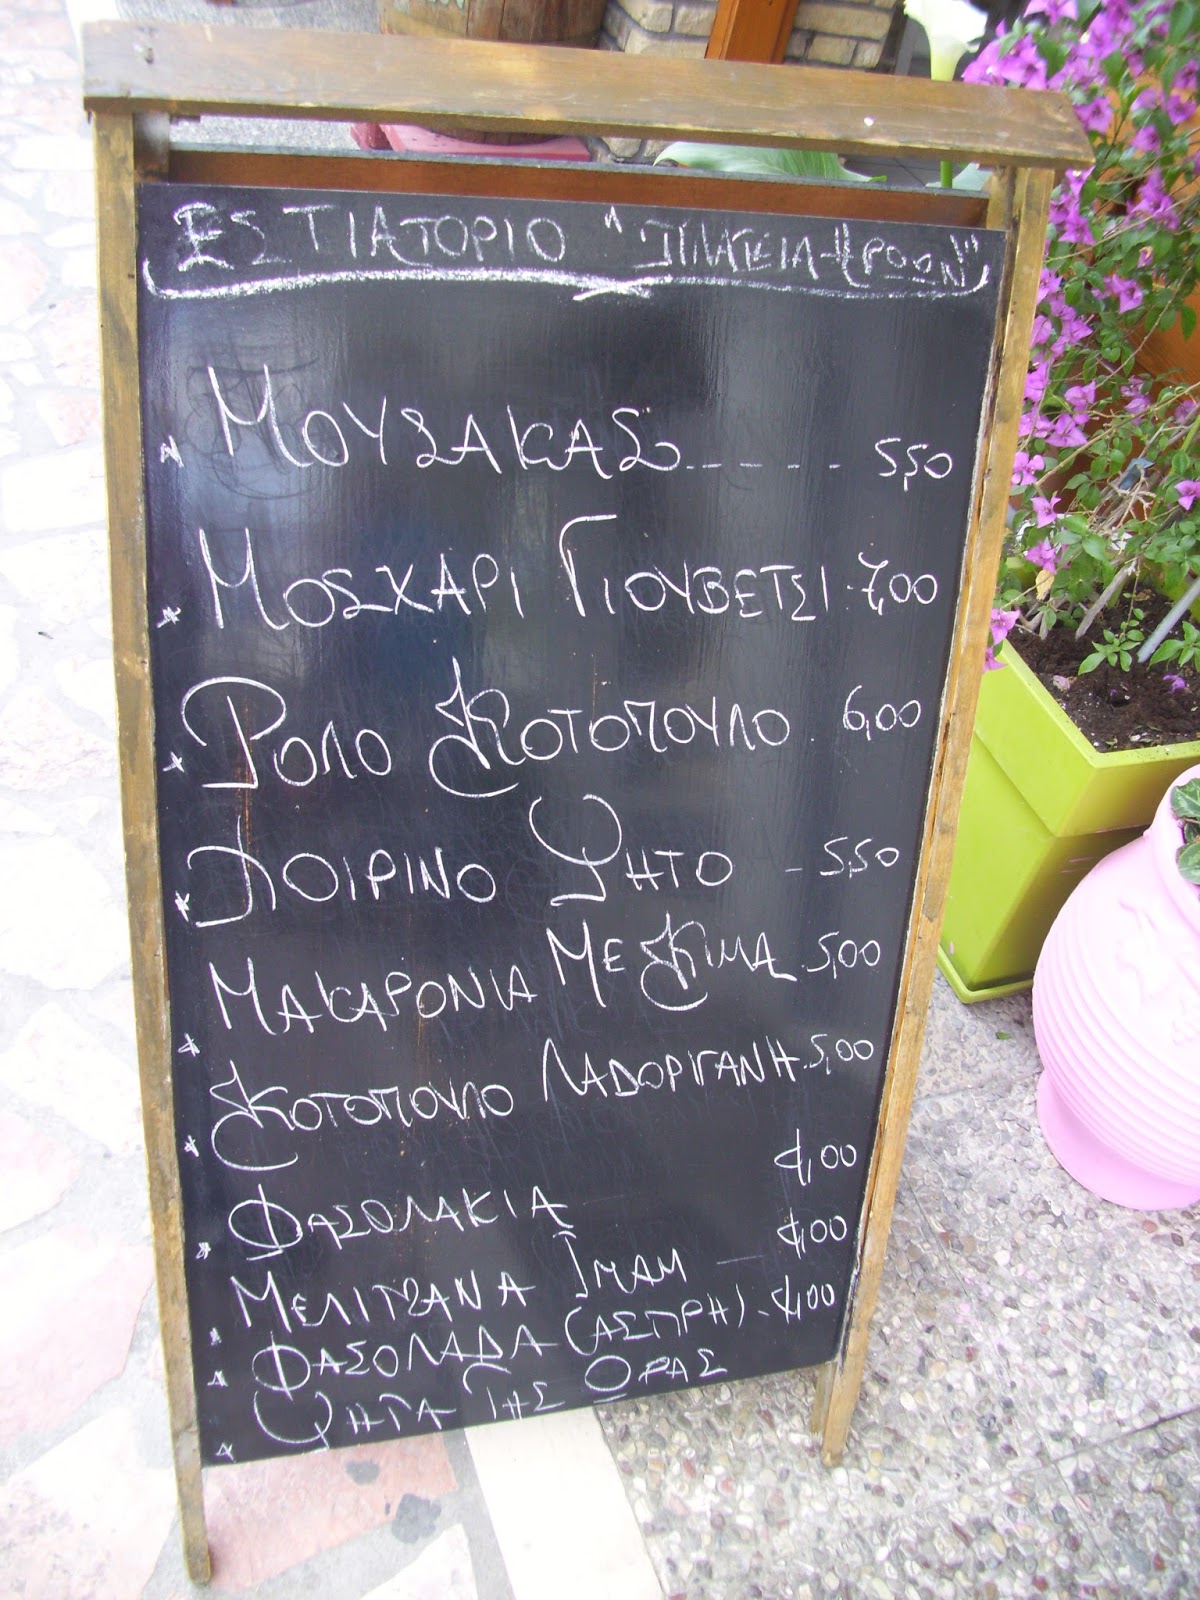 ΕΣΤΙΑΤΟΡΙΟ "ΠΛΑΤΕΙΑ ΗΡΩΩΝ"
* ΜΟΥΣΑΚΑΣ..----- 5,50
* ΜΟΣΧΑΡΙ ΓΙΟΥΒΕΤΣΙ. 7,00
* ΡΟΛΟ ΚΟΤΟΠΟΥΛΟ. 6,00
* ΧΟΙΡΙΝΟ ΨΗΤΟ - 5,50
* ΜΑΚΑΡΟΝΙΑ ΜΕ ΚΙΜΑ. 5,00
* ΚΟΤΟΠΟΥΛΟ ΛΑΔΟΡΙΓΑΝΗ. 5,00
* ΦΑΣΟΛΑΚΙΑ 4,00
* ΜΕΛΙΤΖΑΝΑ ΙΜΑΜ — 4,00
* ΦΑΣΟΛΑΔΑ (ΑΣΠΡΗ). 4,00
* ΨΗΤΑ ΤΗΣ ΩΡΑΣ